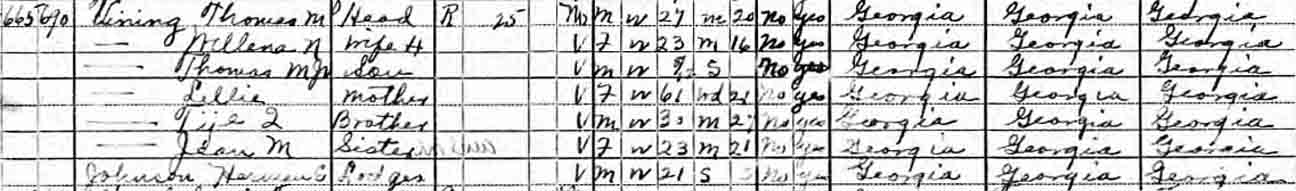 665 690 Vining Thomas M Head R 25 No M W 27 M 20 No Yes Georgia Georgia Georgia
— Willena N Wife H V F W 23 M 16 No Yes Georgia Georgia Georgia
— Thomas M Jr Son V M W S No yes Georgia Georgia Georgia
— Lillie Mother V F W 61 Wd 21 No yes Georgia Georgia Georgia
— Brother V M W M 27 No yes Georgia Georgia Georgia
— Jean M Sister V F W 23 M 21 No Yes Georgia Georgia Georgia
Johnson Lodger V M W 21 S No Yes Georgia Georgia Georgia